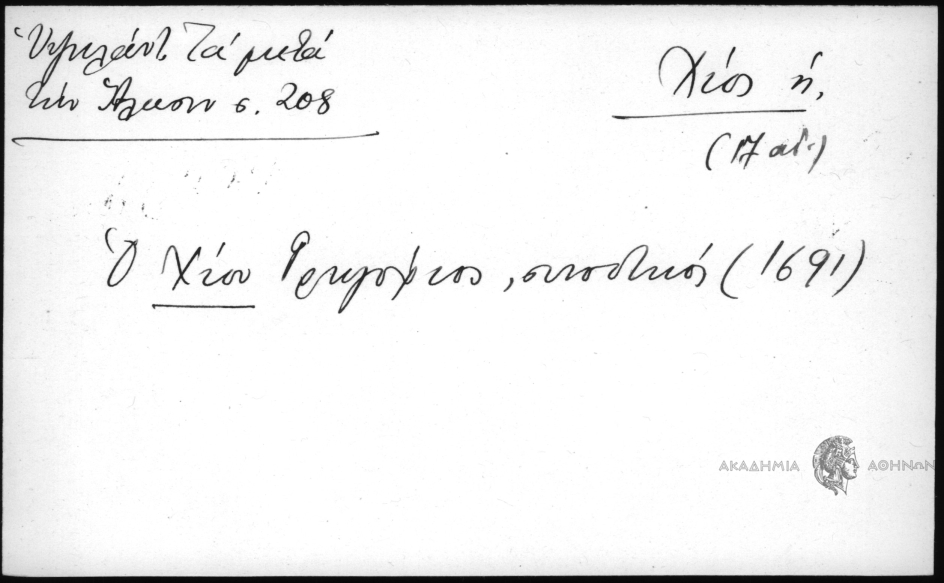 Ὑψηλάντ. Τά μετά
τήν Ἅλωσιν σ. 208
Χίος ἡ,
(17 αἰ.)
Ὁ Χίου Γρηγόριος, συνοδικός (1691)
ΑΚΑΔΗΜΙΑ ΑΘΗΝΩΝ